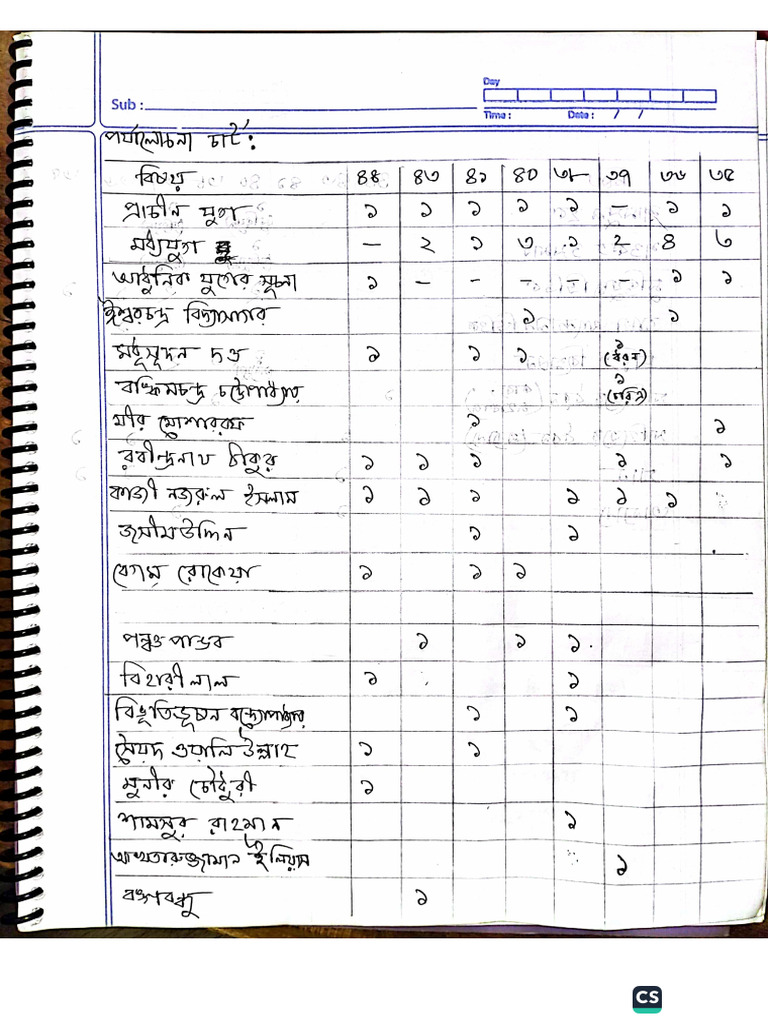 Day
Sub :
Time : Date : / /
পর্যালোচনা চার্ট :
বিষয় ৪৪ ৪৩ ৪১ ৪০ ৩৮ ৩৭ ৩৬ ৩৫
প্রাচীন যুগ ১ ১ ১ ১ ১ – ১ ১
মধ্যযুগ – ২ ১ ৩ ১ ২ ৪ ৩
আধুনিক যুগের সূচনা ১ – – – – – ১ ১
ঈশ্বরচন্দ্র বিদ্যাসাগর ১ ১
মধুসূদন দত্ত ১ ১ ১ ১
বঙ্কিমচন্দ্র চট্টোপাধ্যায় ১ (চরিত্র)
মীর মোশাররফ ১ ১
রবীন্দ্রনাথ ঠাকুর ১ ১ ১ ১ ১
কাজী নজরুল ইসলাম ১ ১ ১ ১ ১ ১
জসীমউদ্দিন ১ ১
বেগম রোকেয়া ১ ১ ১
পঞ্চপান্ডব ১ ১ ১
বিহারীলাল ১ ১
বিভূতিভূষন বন্দ্যোপাধ্যায় ১ ১
সৈয়দ ওয়ালিউল্লাহ ১ ১
মুনীর চৌধুরী ১
শামসুর রাহমান ১
আখতারুজ্জামান ইলিয়াস ১
বঙ্গবন্ধু ১
CS